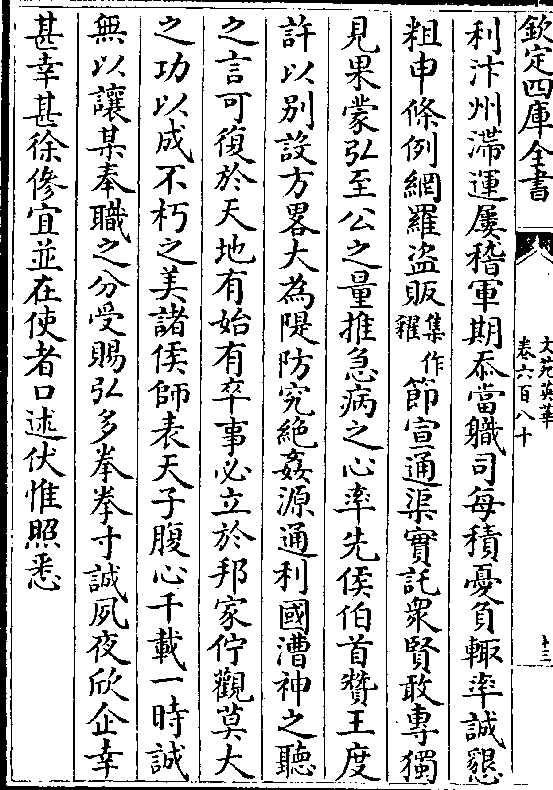 欽定四庫全書
文苑英華
卷六百八十
十三
利汴州滯運屢稽軍期忝當職司每積憂負輙率誠懇
粗申條例網羅盜販集作糴節宣通渠實託衆賢敢專獨
見果蒙弘至公之量推急病之心率先侯伯首贊王度
許以别設方畧大為隄防究絶姦源通利國漕神之聽
之言可復於天地有始有卒事必立於邦家佇觀莫大
之功以成不朽之美諸侯師表天子腹心千載一時誠
無以讓某奉職之分受賜弘多拳拳寸誠夙夜欣企幸
甚幸甚徐修宜並在使者口述伏惟照悉